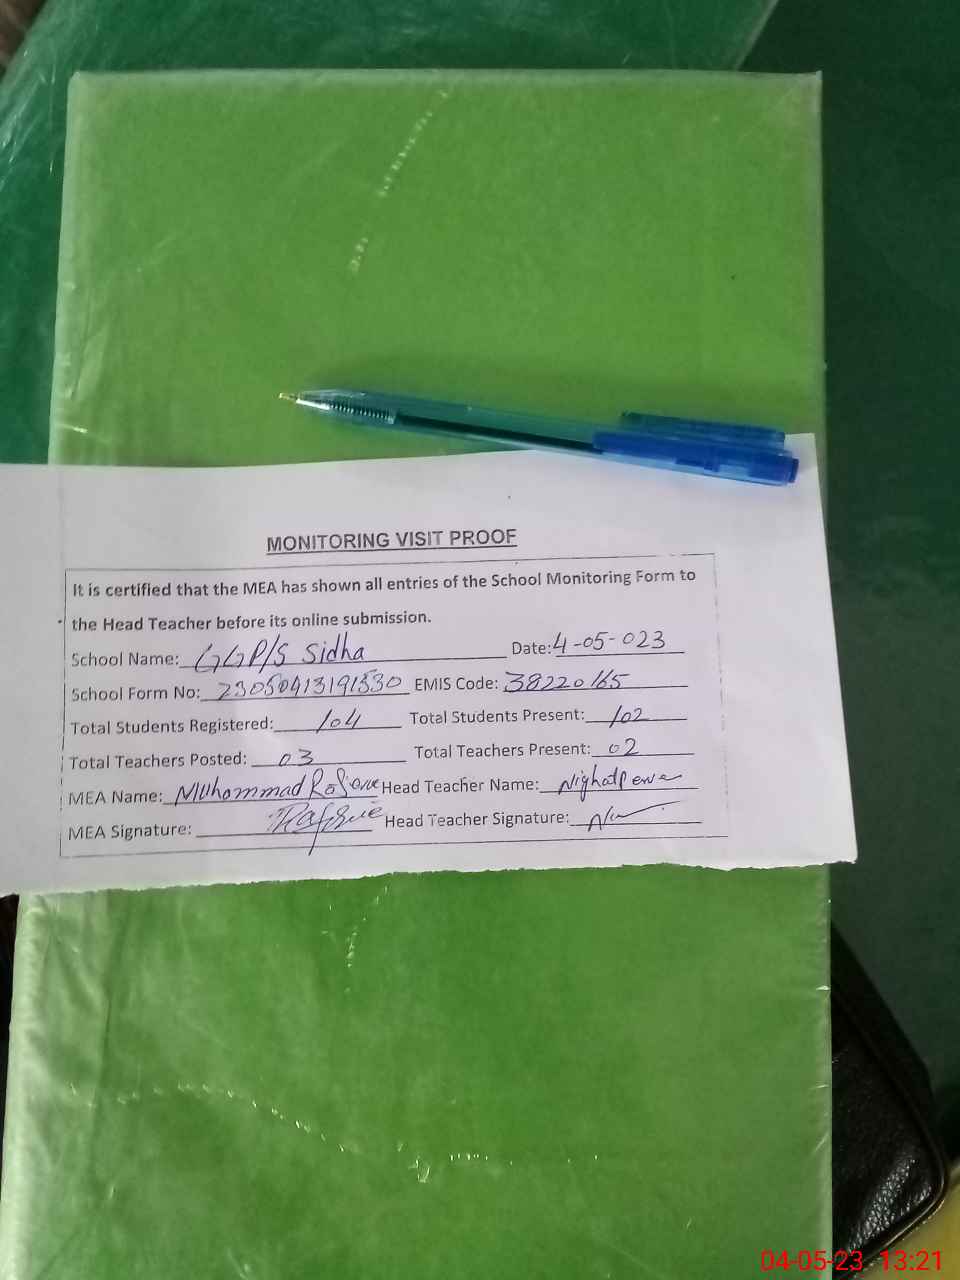 MONITORING VISIT PROOF
It is certified that the MEA has shown all entries of the School Monitoring Form to
the Head Teacher before its online submission.
School Name: GGP/S Sidha Date: 4-05-023
School Form No: 23050413191530 EMIS Code: 38220165
Total Students Registered: 104 Total Students Present: 102
Total Teachers Posted: 03 Total Teachers Present: 02
MEA Name: Muhammad Head Teacher Name: Nighat
MEA Signature: Head Teacher Signature:
04-05-23 13:21